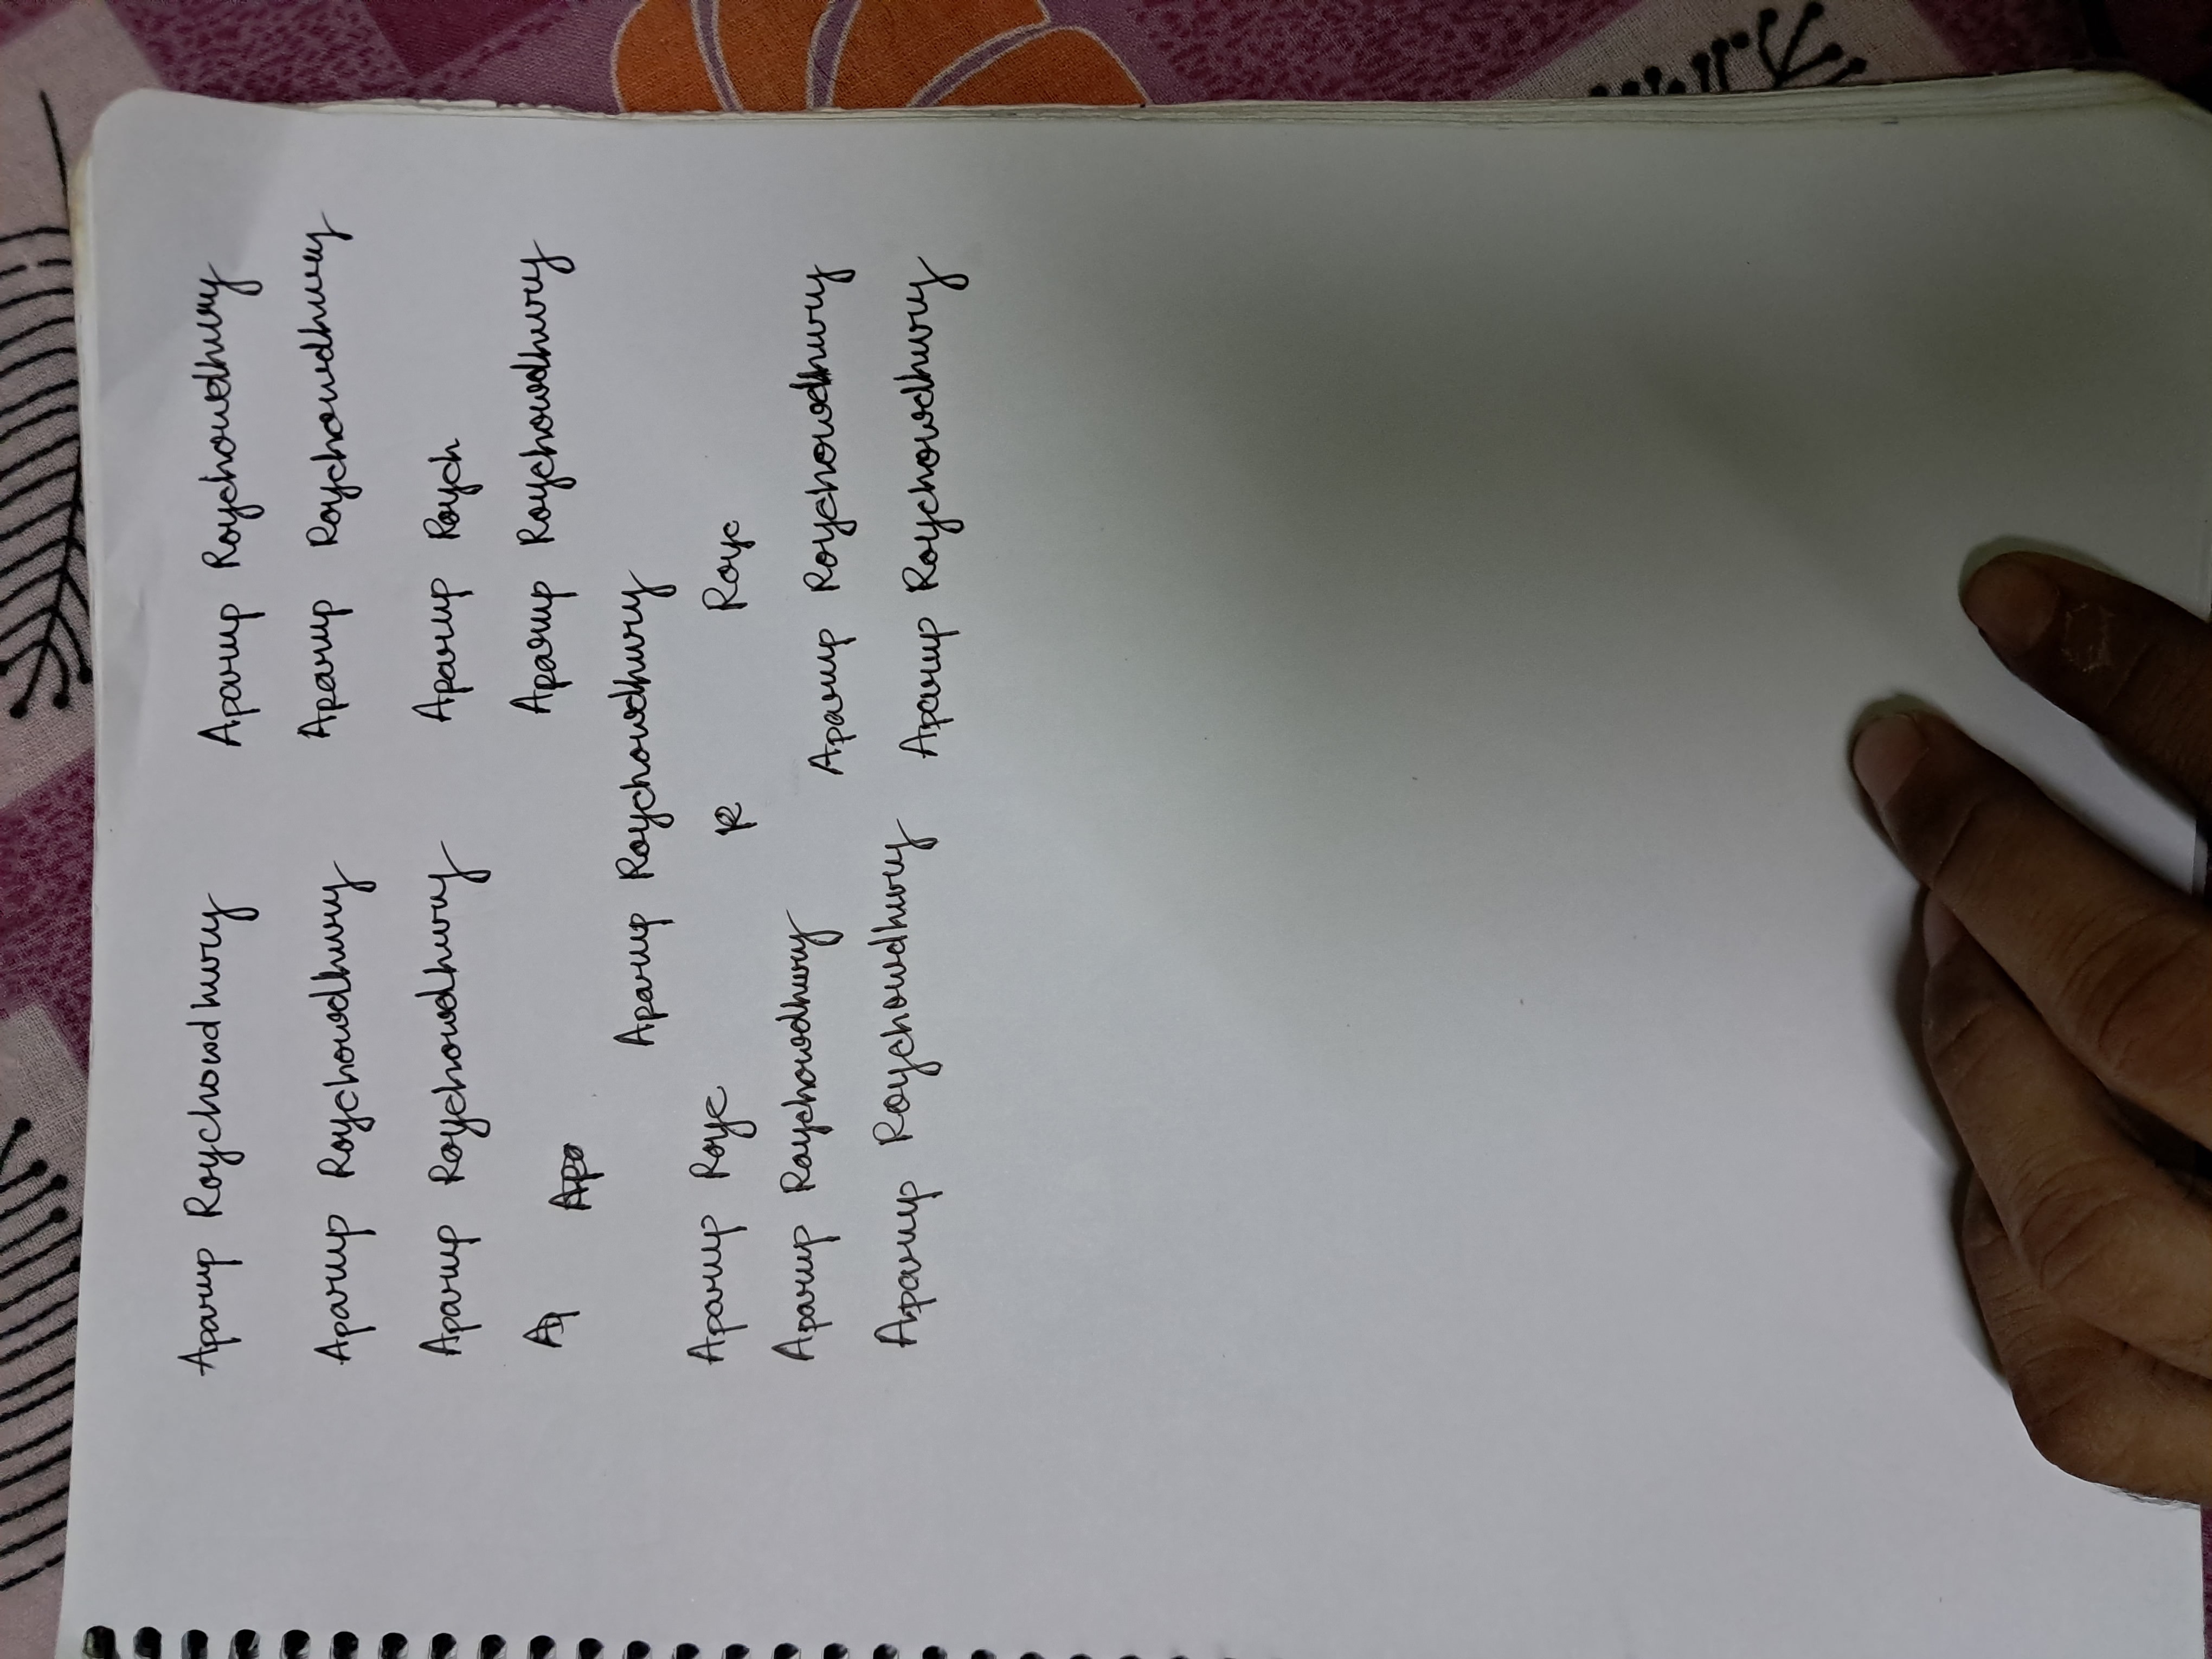 Aparup Roychowdhury Aparup Roychowdhury
Aparup Roychowdhury Aparup Roychowdhury
Aparup Roychowdhury Aparup Roych
Ap Apa Aparup Roychowdhury
Aparup Roychowdhury
Aparup Royc R Royc
Aparup Roychowdhury Aparup Roychowdhury
Aparup Roychowdhury Aparup Roychowdhury